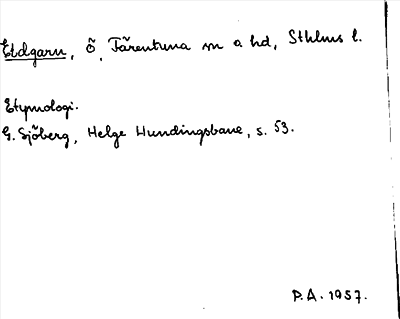 Eldgarn, ö, Färentuna sn o. hd, Sthlms l.
Etymologi.
G. Sjöberg, Helge Hundingsbane, s. 53.
P.A. 1957.